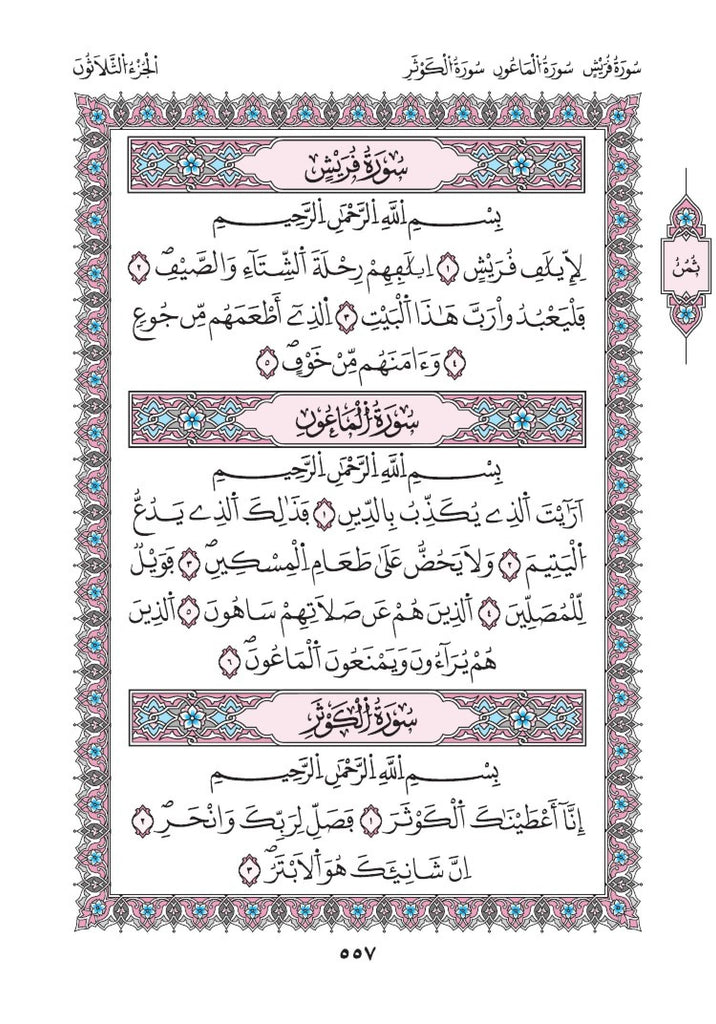 سُورَةُ قُرَيْشٍ سُورَةُ الْمَاعُونِ سُورَةُ الْكَوْثَرِ
الْجُزْءُ الثَّلَاثُونَ
سُورَةُ قُرَيْشٍ
بِسْمِ اِ۬للَّهِ اِ۬لرَّحْمَٰنِ اِ۬لرَّحِيمِ
لِإِيلَٰفِ قُرَيْشٍ ١ اِۦلَٰفِهِمْ رِحْلَةَ اَ۬لشِّتَآءِ وَالصَّيْفِۖ ٢
فَلْيَعْبُدُواْ رَبَّ هَٰذَا اَ۬لْبَيْتِ ٣ اِ۬لذِےٓ أَطْعَمَهُم مِّن جُوعٍ
٤ وَءَامَنَهُم مِّنْ خَوْفٍۖ ٥
ثُمُنُ
سُورَةُ الْمَاعُونِ
بِسْمِ اِ۬للَّهِ اِ۬لرَّحْمَٰنِ اِ۬لرَّحِيمِ
أَرَٰٓيْتَ اَ۬لذِے يُكَذِّبُ بِالدِّينِ ١ فَذَٰلِكَ اَ۬لذِے يَدُعُّ
اُ۬لْيَتِيمَ ٢ وَلَا يَحُضُّ عَلَىٰ طَعَامِ اِ۬لْمِسْكِينِۖ ٣ فَوَيْلٌ
لِّلْمُصَلِّينَ ٤ اَ۬لذِينَ هُمْ عَن صَلَاتِهِمْ سَاهُونَ ٥ اَ۬لذِينَ
هُمْ يُرَآءُونَ وَيَمْنَعُونَ اَ۬لْمَاعُونَۖ ٦
سُورَةُ الْكَوْثَرِ
بِسْمِ اِ۬للَّهِ اِ۬لرَّحْمَٰنِ اِ۬لرَّحِيمِ
إِنَّآ أَعْطَيْنَٰكَ اَ۬لْكَوْثَرَ ١ فَصَلِّ لِرَبِّكَ وَانْحَرِۖ ٢
اِنَّ شَانِئَكَ هُوَ اَ۬لَابْتَرُۖ ٣
٥٥٧